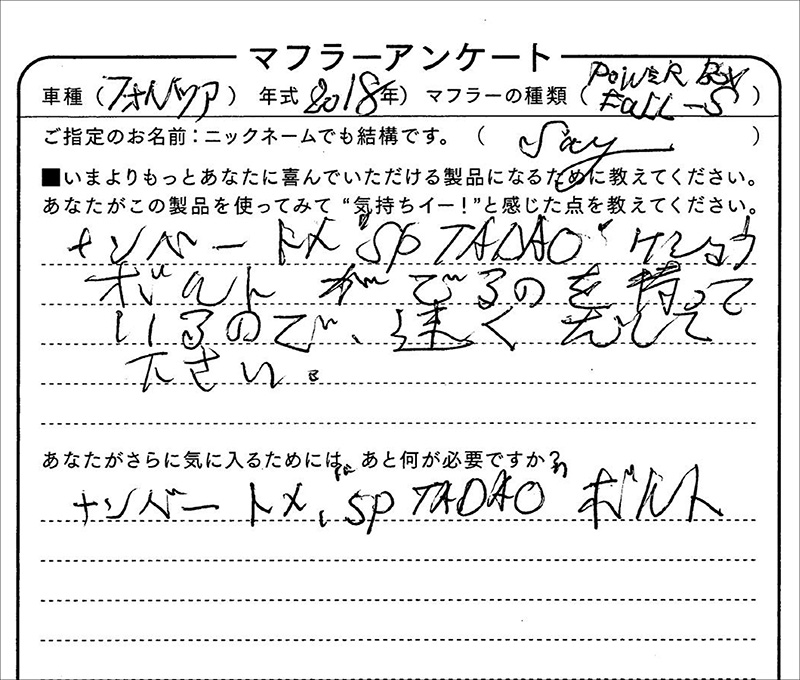 マフラーアンケート
車種（フォルツァ） 年式 2018年） マフラーの種類（POWER BOX FULL-S）
ご指定のお名前：ニックネームでも結構です。（ Say ）
■いまよりもっとあなたに喜んでいただける製品になるために教えてください。
あなたがこの製品を使ってみて “気持ちイー！”と感じた点を教えてください。
ナンバートメ "SP TADAO"
ボルト がでるのを持って
いるので、速く 出して
下さい。
あなたがさらに気に入るためには、あと何が必要ですか？
ナンバートメ、"SP TADAO" ボルト